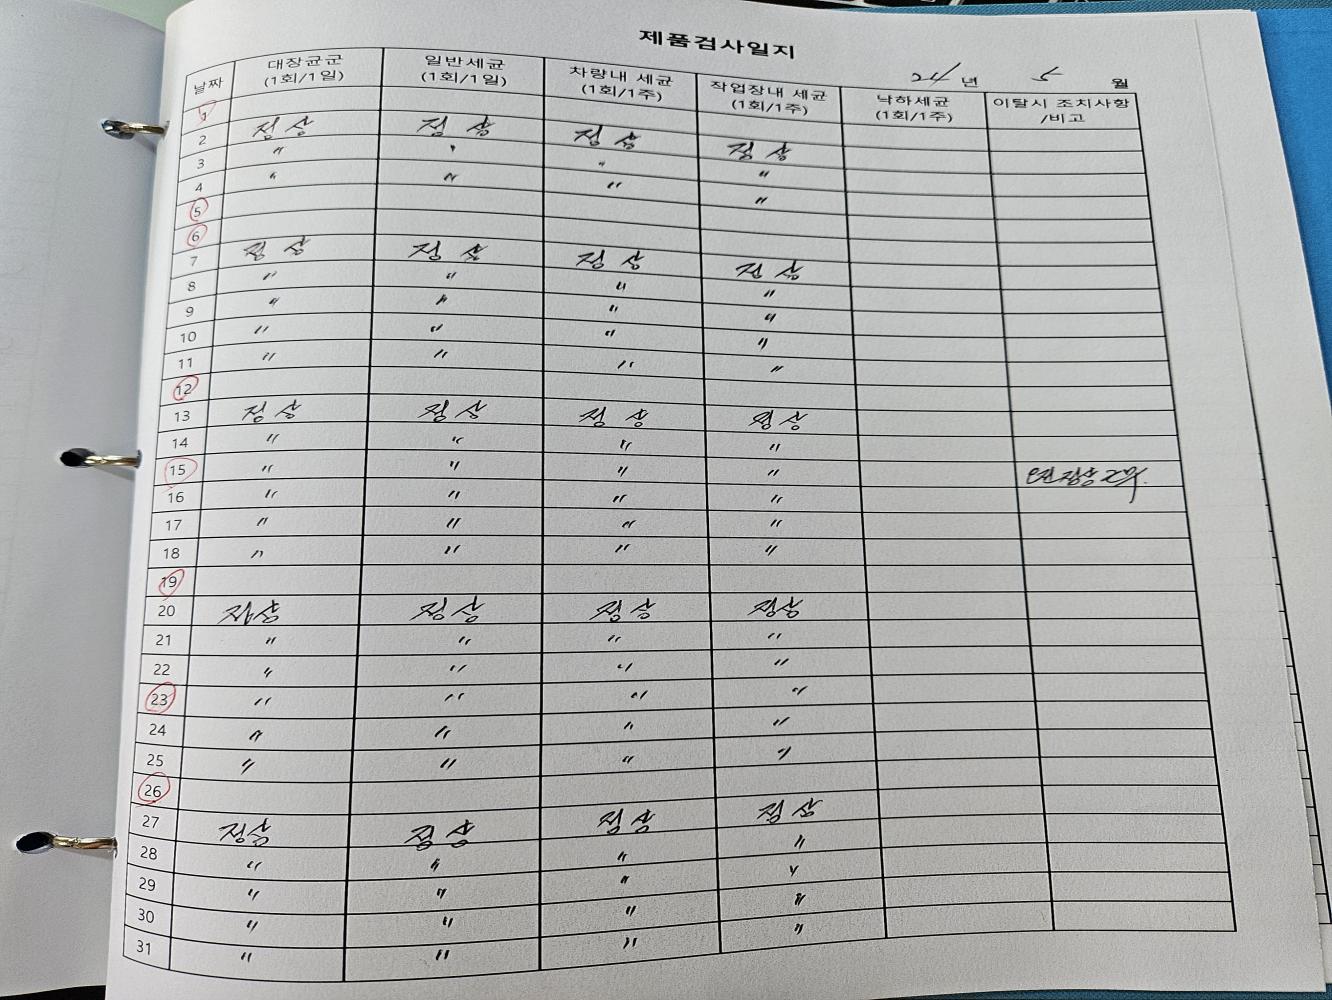 제품검사일지
24 년 5 월
날짜 대장균군 (1회/1일) 일반세균 (1회/1일) 차량내 세균 (1회/1주) 작업장내 세균 (1회/1주) 낙하세균 (1회/1주) 이탈시 조치사항 /비고
1
2 정상 정상 정상 정상
3 〃 〃 〃 〃
4 〃 〃 〃 〃
5
6
7 정상 정상 정상 정상
8 〃 〃 〃 〃
9 〃 〃 〃 〃
10 〃 〃 〃 〃
11 〃 〃 〃 〃
12
13 정상 정상 정상 정상
14 〃 〃 〃 〃
15 〃 〃 〃 〃 정상
16 〃 〃 〃 〃
17 〃 〃 〃 〃
18 〃 〃 〃 〃
19
20 정상 정상 정상 정상
21 〃 〃 〃 〃
22 〃 〃 〃 〃
23 〃 〃 〃 〃
24 〃 〃 〃 〃
25 〃 〃 〃 〃
26
27 정상 정상 정상 정상
28 〃 〃 〃 〃
29 〃 〃 〃 〃
30 〃 〃 〃 〃
31 〃 〃 〃 〃